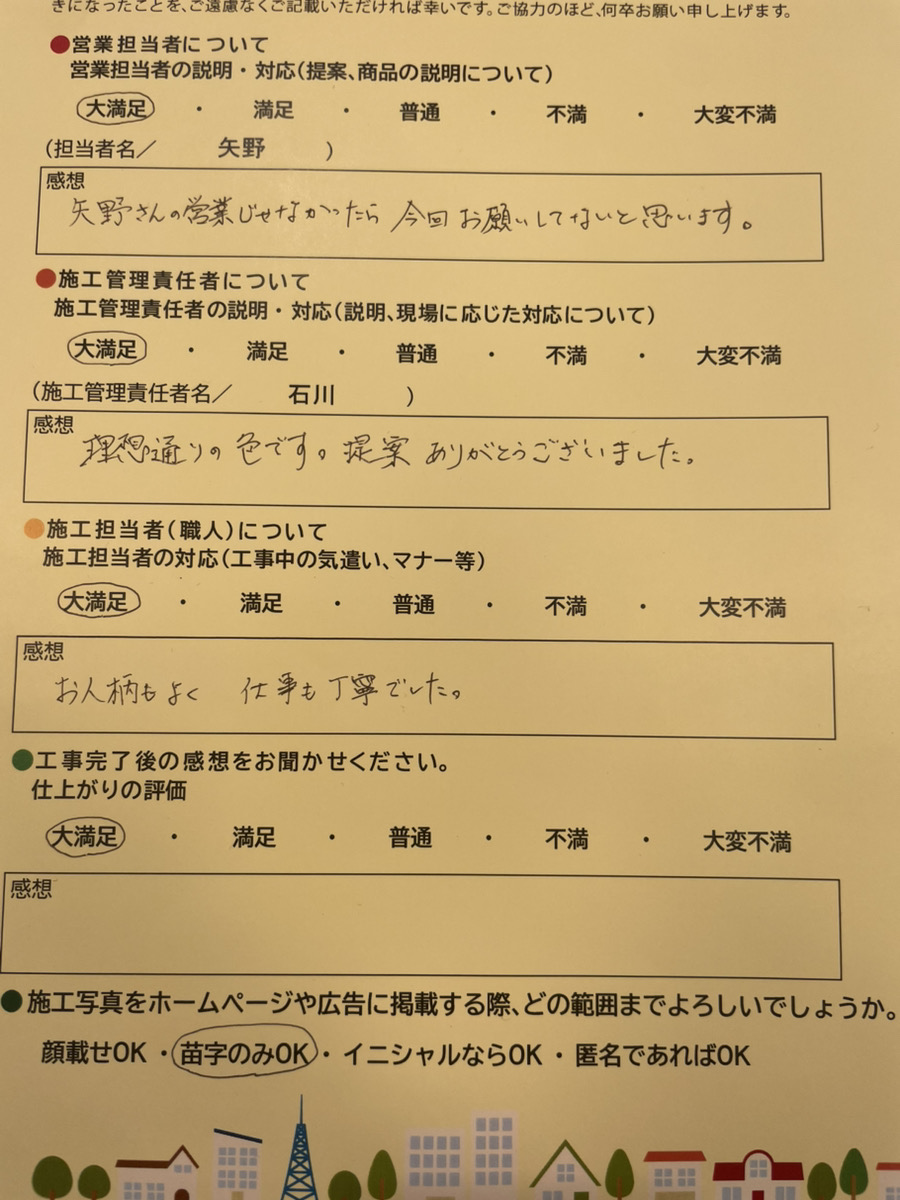 きになったことを、ご遠慮なくご記載いただければ幸いです。ご協力のほど、何卒お願い申し上げます。
●営業担当者について
営業担当者の説明・対応(提案、商品の説明について)
大満足 ・ 満足 ・ 普通 ・ 不満 ・ 大変不満
(担当者名／ 矢野 )
感想
矢野さんの営業じゃなかったら 今回お願いしてないと思います。
●施工管理責任者について
施工管理責任者の説明・対応(説明、現場に応じた対応について)
大満足 ・ 満足 ・ 普通 ・ 不満 ・ 大変不満
(施工管理責任者名／ 石川 )
感想
理想通りの色です。提案ありがとうございました。
●施工担当者(職人)について
施工担当者の対応(工事中の気遣い、マナー等)
大満足 ・ 満足 ・ 普通 ・ 不満 ・ 大変不満
感想
お人柄もよく 仕事も丁寧でした。
●工事完了後の感想をお聞かせください。
仕上がりの評価
大満足 ・ 満足 ・ 普通 ・ 不満 ・ 大変不満
感想
●施工写真をホームページや広告に掲載する際、どの範囲までよろしいでしょうか。
顔載せOK ・ 苗字のみOK ・ イニシャルならOK ・ 匿名であればOK